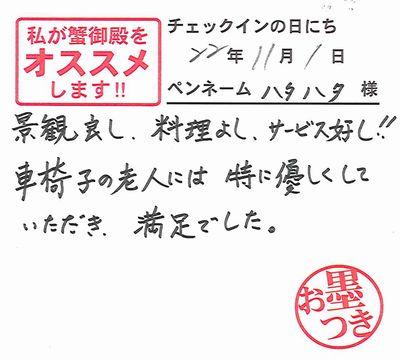 私が蟹御殿を
オススメ
します!!
チェックインの日にち
22年11月1日
ペンネーム ハタハタ 様
景観良し、料理よし、サービス好し!!
車椅子の老人には 特に優しくして
いただき、満足でした。
お墨つき